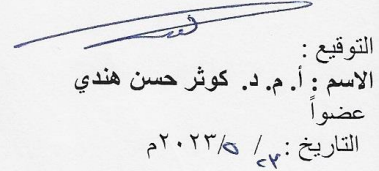 التوقيع :
الاسم : أ. م. د. كوثر حسن هندي
عضواً
التاريخ : ٢٣/ ٥/ ٢٠٢٣م